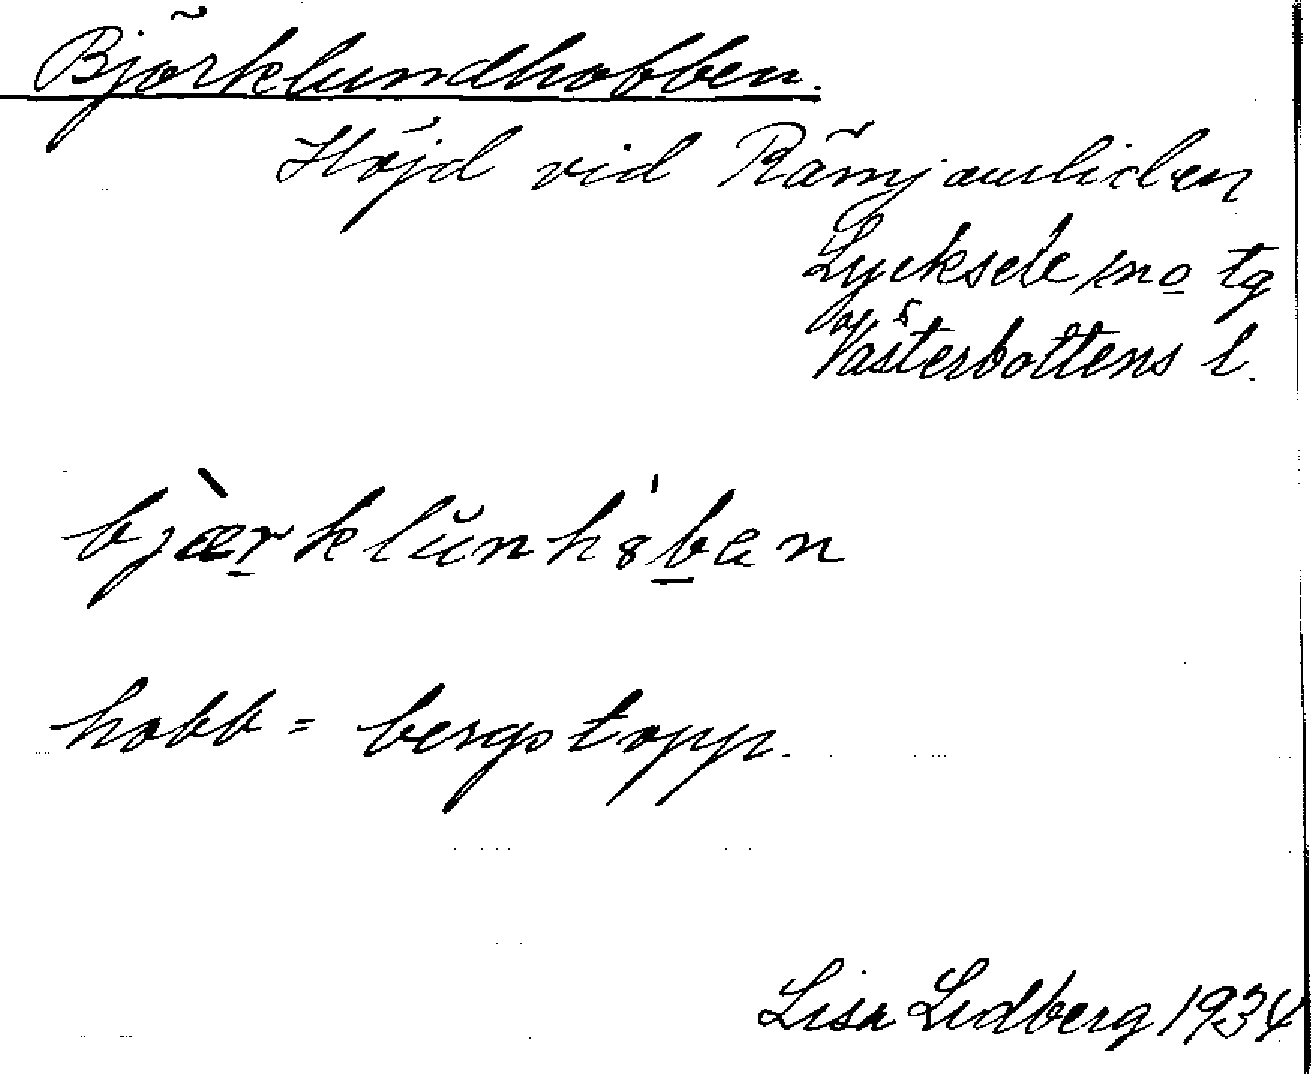 Björklundhobben.
Höjd vid Rämjaurliden
Lycksele sno tg
Västerbottens l.
hobb = bergstopp.
Lisa Lidberg 1934